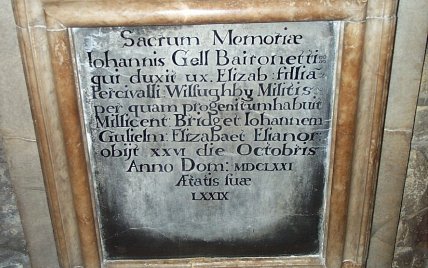 Sacrum Memoriæ
Iohannis Gell Baironetti
qui duxit ux. Elizab: filliā
Percivalli Willughby Militis
per quam progenitum habuit
Millicent: Bridget Iohannem
Gulielm: Elizabaet Elianor
obijt XXVI die Octobris
Anno Dom: MDCLXXI
Ætatis suæ
LXXIX